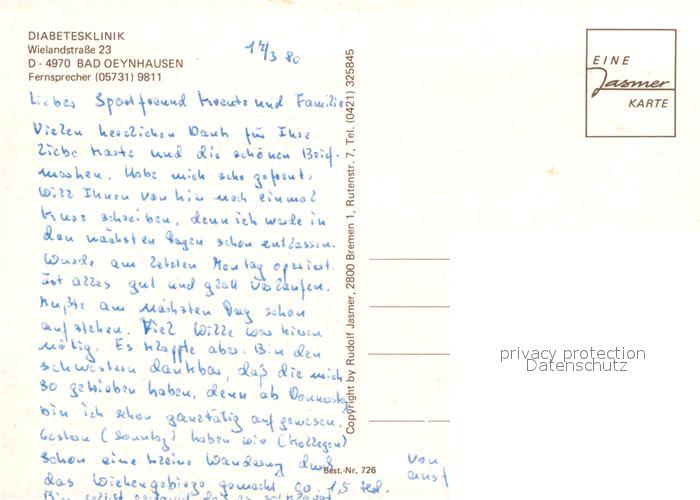 DIABETESKLINIK
Wielandstraße 23
D - 4970 BAD OEYNHAUSEN
Fernsprecher (05731) 9811
17/3 80
Liebes Sportfreund und Familie
Vielen herzlichen Dank für Ihre
liebe Karte und die schönen Brief-
marken. Habe mich sehr gefreut.
Will Ihnen von hier noch einmal
kurz schreiben, denn ich werde in
den nächsten Tagen schon entlassen.
Wurde am letzten Montag operiert.
Ist alles gut und glatt verlaufen.
Mußte am nächsten Tag schon
aufstehen. Viel Wille war hierzu
nötig. Es klappte aber. Bin den
Schwestern dankbar, daß die mich
so getrieben haben, denn ab Donnerstag
bin ich schon ganztätig auf gewesen.
Gestern (Sonntag) haben wir (Kollegen)
schon eine kleine Wanderung durch
das Wiehengebirge gemacht ca. 1,5 Std.
Bin selbst
von
Copyright by Rudolf Jasmer, 2800 Bremen 1, Rutenstr. 7, Tel. (0421) 325845
Best.-Nr. 726
EINE
Jasmer
KARTE
privacy protection
Datenschutz